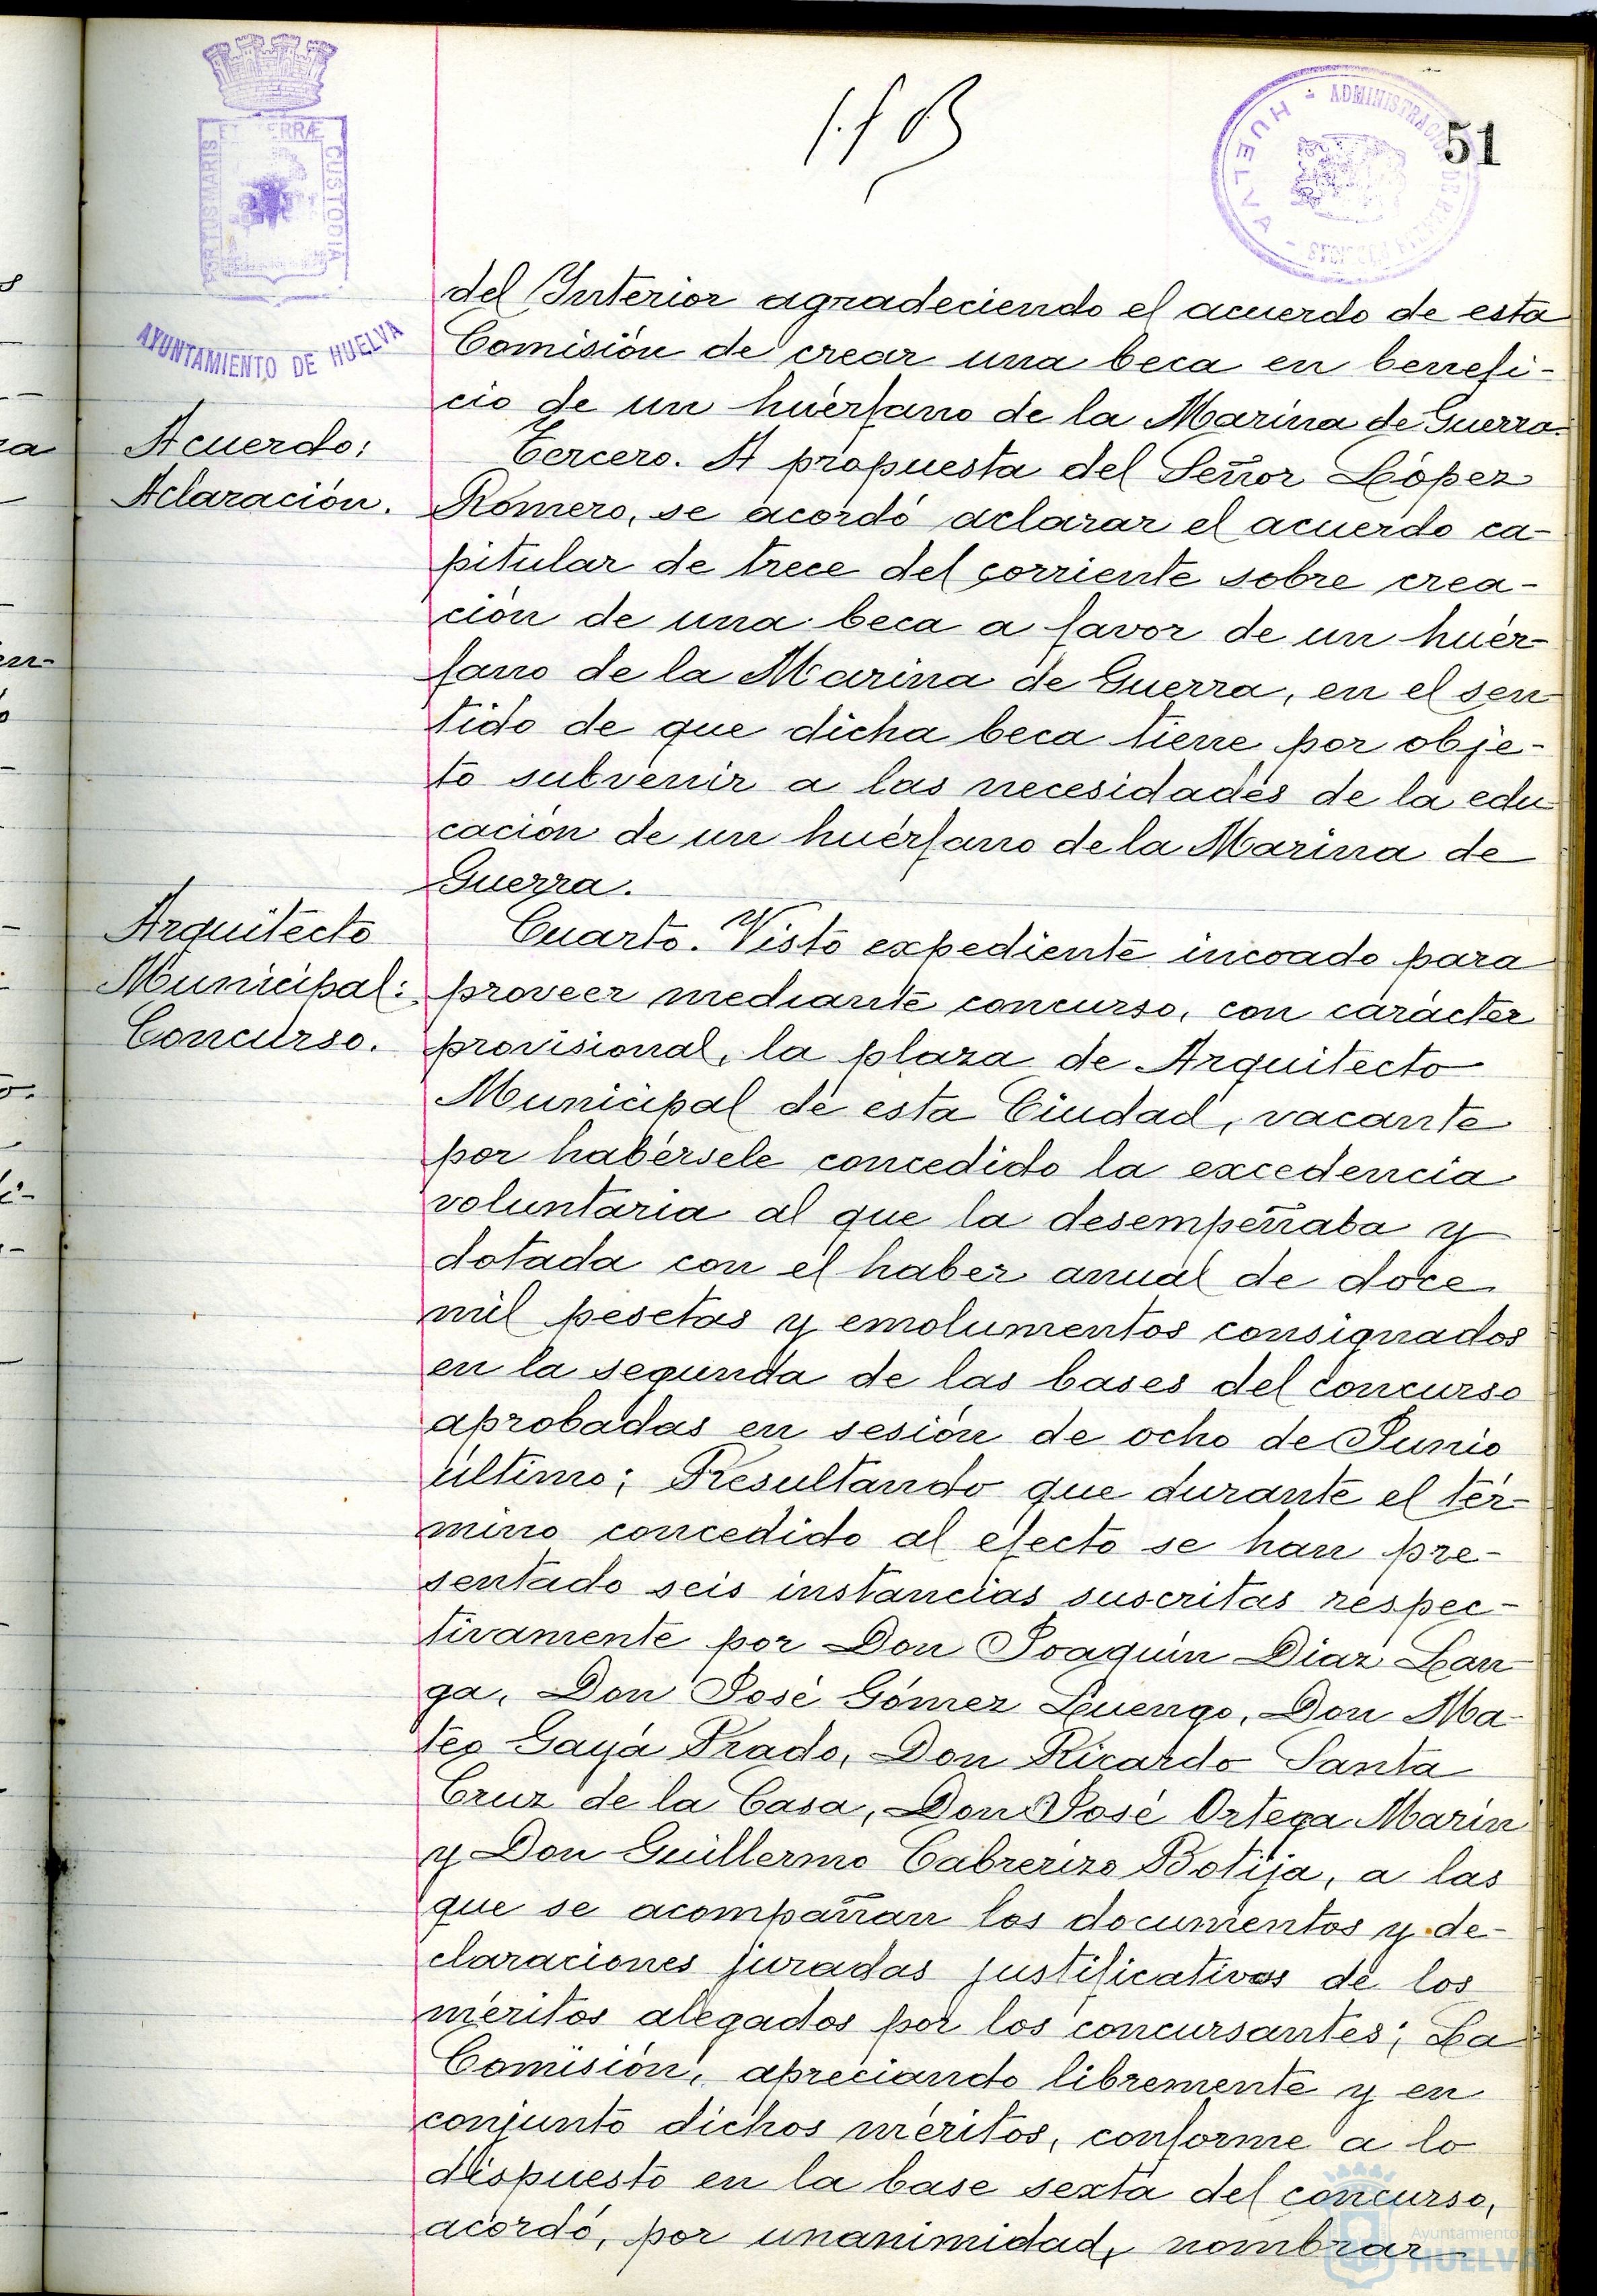 51
ADMINISTRACIÓN DE
HUELVA
PORTUS MARIS
ET TERRÆ
CUSTODIA
AYUNTAMIENTO DE HUELVA
del Interior agradeciendo el acuerdo de esta
Comisión de crear una beca en benefi-
cio de un huérfano de la Marina de Guerra.
Acuerdo:
Aclaración.
Tercero. A propuesta del Señor López
Romero, se acordó aclarar el acuerdo ca-
pitular de trece del corriente sobre crea-
ción de una beca a favor de un huér-
fano de la Marina de Guerra, en el sen-
tido de que dicha beca tiene por obje-
to subvenir a las necesidades de la edu-
cación de un huérfano de la Marina de
Guerra.
Arquitecto
Municipal:
Concurso.
Cuarto. Visto expediente incoado para
proveer mediante concurso, con carácter
provisional, la plaza de Arquitecto
Municipal de esta Ciudad, vacante
por habérsele concedido la excedencia
voluntaria al que la desempeñaba y
dotada con el haber anual de doce
mil pesetas y emolumentos consignados
en la segunda de las bases del concurso
aprobadas en sesión de ocho de Junio
último; Resultando que durante el tér-
mino concedido al efecto se han pre-
sentado seis instancias suscritas respec-
tivamente por Don Joaquín Díaz Lan-
ga, Don José Gómez Luengo, Don Ma-
teo Gayá Prado, Don Ricardo Santa
Cruz de la Casa, Don José Ortega Marín
y Don Guillermo Cabrerizo Botija, a las
que se acompañan los documentos y de-
claraciones juradas justificativas de los
méritos alegados por los concursantes; La
Comisión, apreciando libremente y en
conjunto dichos méritos, conforme a lo
dispuesto en la base sexta del concurso,
acordó, por unanimidad, nombrar
Ayuntamiento de
HUELVA